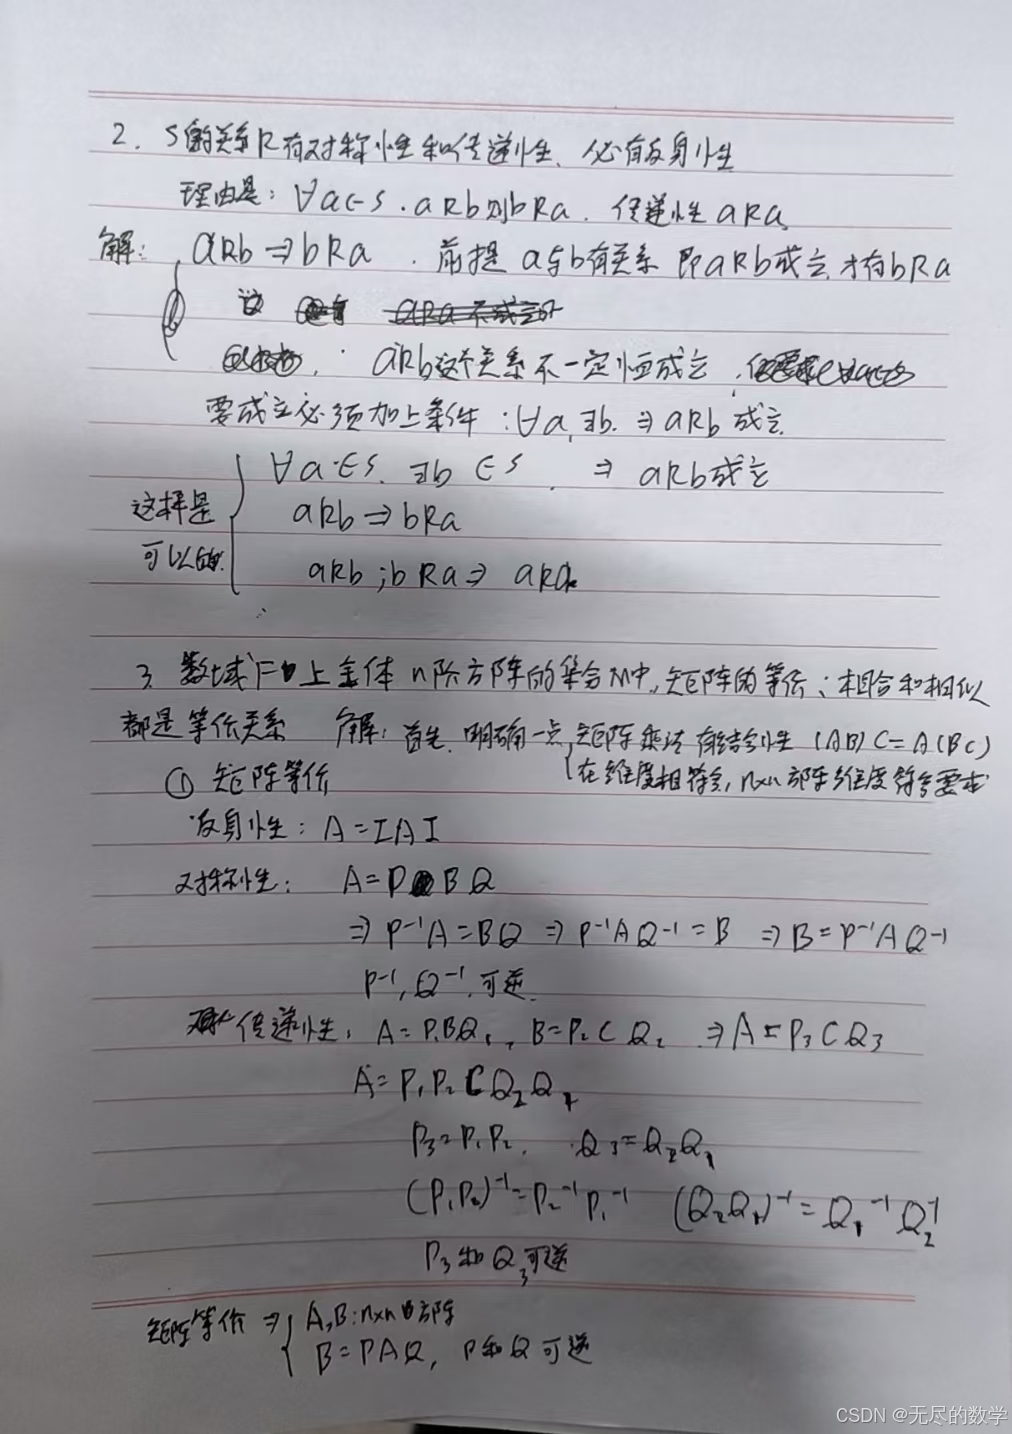 2. S的关系R有对称性和传递性、必有反身性
理由是：∀a∈S．aRb则bRa．传递性aRa.
解： aRb⇒bRa ．前提 a与b有关系 即aRb成立才有bRa
aRb这个关系不一定恒成立．
要成立必须加上条件：∀a,∃b. ⇒aRb成立.
∀a∈S. ∃b∈S . ⇒ aRb成立
这样是
aRb⇒bRa
可以的.
aRb;bRa⇒ aRa.
3. 数域F上全体n阶方阵的集合M中,矩阵的等价、相合和相似
都是等价关系 解：首先．明确一点,矩阵乘法有结合性 (AB)C=A(BC)
在维度相符合, n×n方阵维度符合要求
① 矩阵等价
反身性：A=IAI
对称性： A=PBQ
⇒P⁻¹A=BQ ⇒P⁻¹AQ⁻¹=B ⇒B=P⁻¹AQ⁻¹
P⁻¹, Q⁻¹.可逆.
传递性：A=P₁BQ₁, B=P₂CQ₂ ⇒A=P₃CQ₃
A=P₁P₂CQ₂Q₁
P₃=P₁P₂. Q₃=Q₂Q₁
(P₁P₂)⁻¹=P₂⁻¹P₁⁻¹ (Q₂Q₁)⁻¹=Q₁⁻¹Q₂⁻¹
P₃和Q₃可逆
矩阵等价 ⇒ A,B:n×n方阵
B=PAQ, P和Q可逆
CSDN @无尽的数学